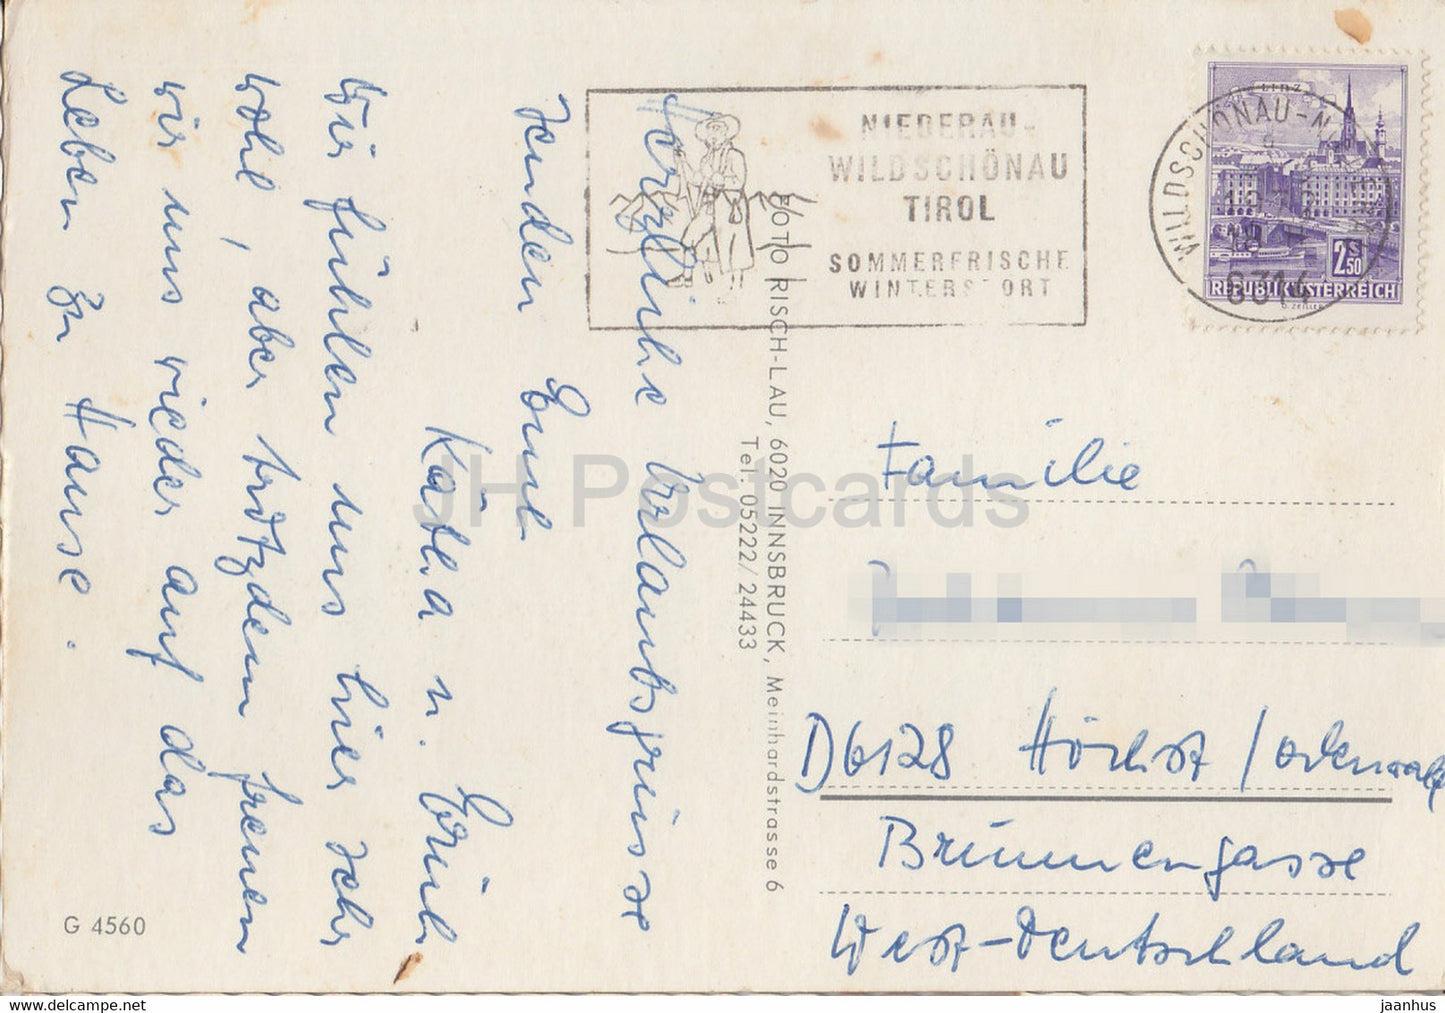 Herzliche Urlaubsgrüsse
senden Eure
Kätha u. Erich
Wir fühlen uns hier sehr
wohl, aber trotzdem freuen
wir uns wieder auf das
Leben zu Hause.
G 4560
FOTO RISCH-LAU, 6020 INNSBRUCK, Meinhardstrasse 6
Tel. 05222/24433
NIEDERAU-
WILDSCHÖNAU
TIROL
SOMMERFRISCHE
WINTERSPORT
LINZ
2 S 50
REPUBLIK ÖSTERREICH
WILDSCHÖNAU-NIEDERAU
6314
Familie
D 6128 Höchst / Odenwald
Brunnengasse
West-Deutschland
JH Postcards
HipPostcard.com
jaanhus